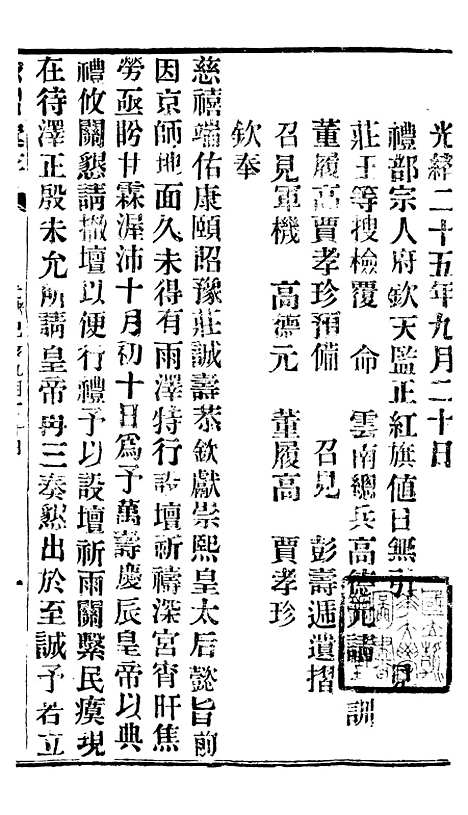 光緖二十五年九月二十日
禮部宗人府欽天監正紅旗値日無引見
莊王等搜檢覆　命　雲南總兵高德元請　訓
董履高賈孝珍預備　召見　彭壽遞遺摺
召見軍機　高德元　董履高　賈孝珍
欽奉
慈禧端佑康頤昭豫莊誠壽恭欽獻崇熙皇太后懿旨前
因京師地面久未得有雨澤特行設壇祈禱深宮宵旰焦
勞亟盼甘霖渥沛十月初十日爲予萬壽慶辰皇帝以典
禮攸關懇請撤壇以便行禮予以設壇祈雨關繫民瘼現
在待澤正殷未允所請皇帝再三奏懇出於至誠予若立